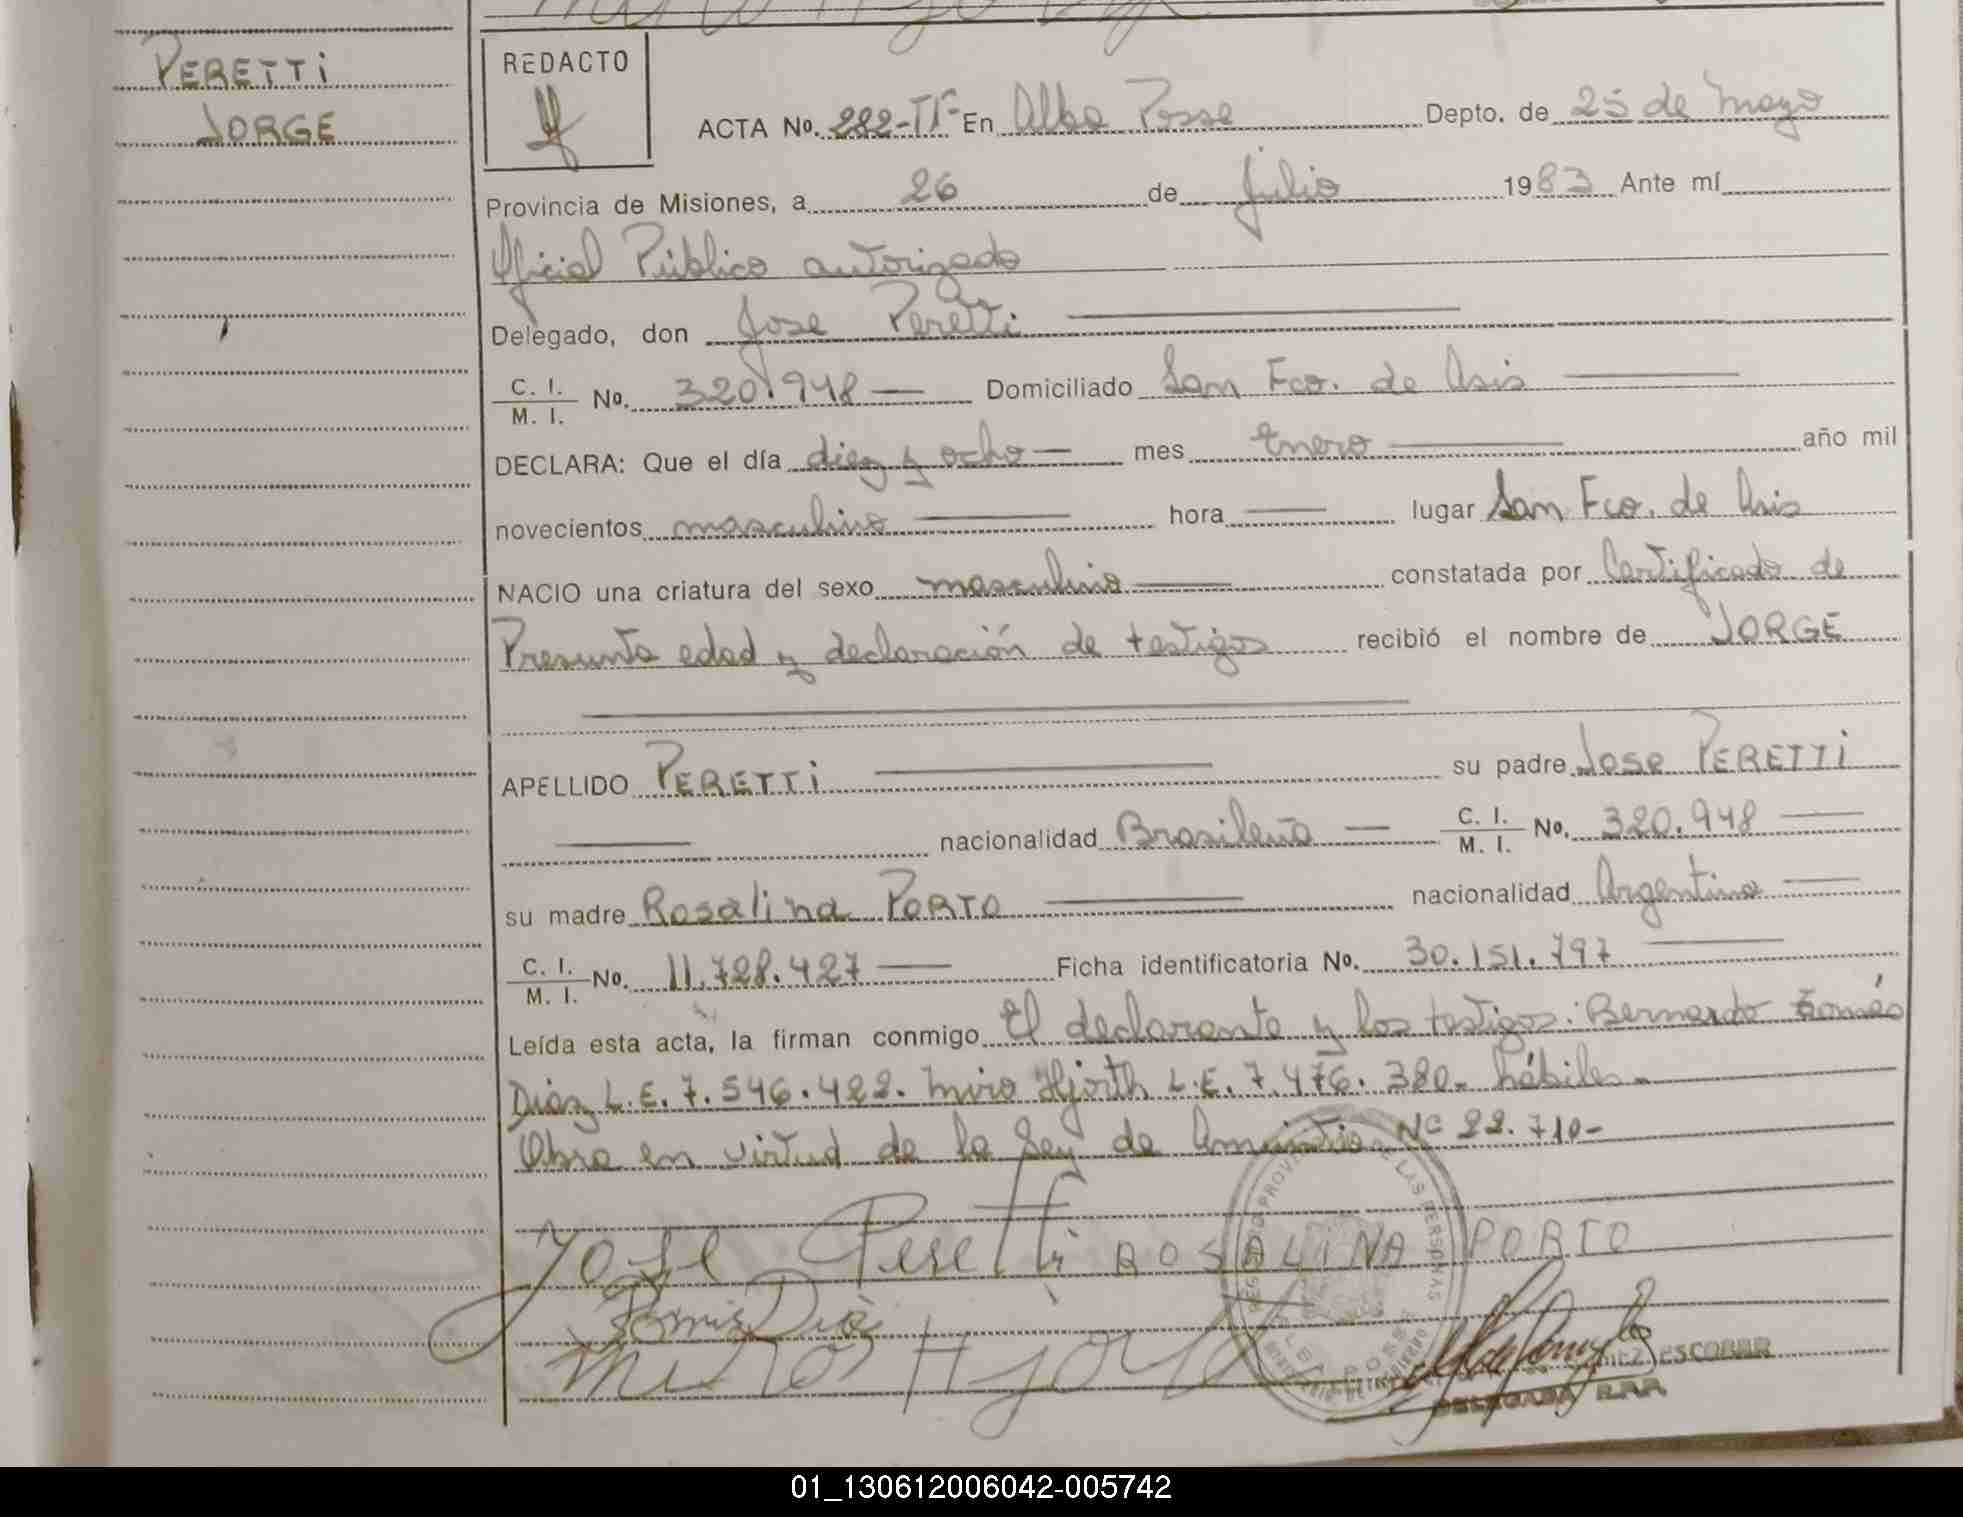 PERETTI
JORGE
REDACTO
ACTA No. 282-Tº En Alba Posse Depto. de 25 de Mayo
Provincia de Misiones, a 26 de julio 1983 Ante mí
Oficial Público autorizado
Delegado, don Jose Peretti
C. I. / M. I. No. 320.948 — Domiciliado San Fco. de Asis
DECLARA: Que el día diez y ocho — mes Enero año mil
novecientos masculino hora lugar San Fco. de Asis
NACIO una criatura del sexo masculino constatada por Certificado de
Presunta edad y declaración de testigos recibió el nombre de JORGE
APELLIDO PERETTI su padre Jose PERETTI
nacionalidad Brasileña — C. I. / M. I. No. 320.948
su madre Rosalina PORTO nacionalidad Argentina
C. I. / M. I. No. 11.728.427 — Ficha identificatoria No. 30.151.797
Leída esta acta, la firman conmigo El declarante y los testigos: Bernardo Tomás
Diaz L.E. 7.546.422. Miro Hjorth L.E. 7.476.380- hábiles-
Obra en virtud de la Ley de Amnistia Nº 22.710-
Jose Peretti ROSALINA PORTO
Miro Hjorth
ESCOBAR
DELEGADA R.P.P.
REGISTRO PROVINCIAL DE LAS PERSONAS
ALBA POSSE
01_130612006042-005742